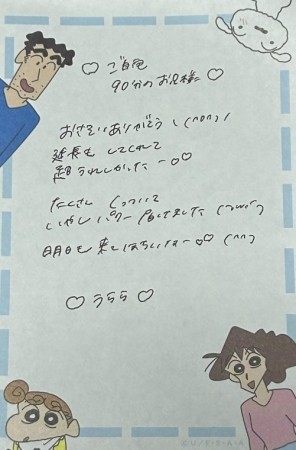 ♡ ご自宅
90分のお兄様 ♡
おさそいありがとう！(^o^)/
延長も してくれて
超うれしかったー♡♡
たくさん くっついて
いやしパワー
明日も 来てほしいなー♡♡ (^^)
♡ うらら ♡